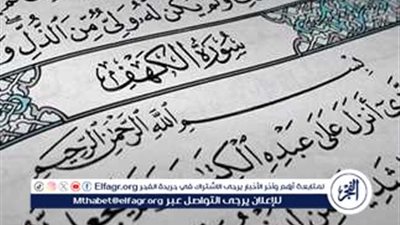 لم يكن له ولي من الذل و
سورة الكهف
بسم الله الرحمن الرحيم
أنزل على عبده الكتا
لمتابعة أهم وأخر الأخبار يرجى الاشتراك في جريدة الفجر Elfagr.org
للإعلان يرجى التواصل عبر Mthabet@elfagr.org
الفجر